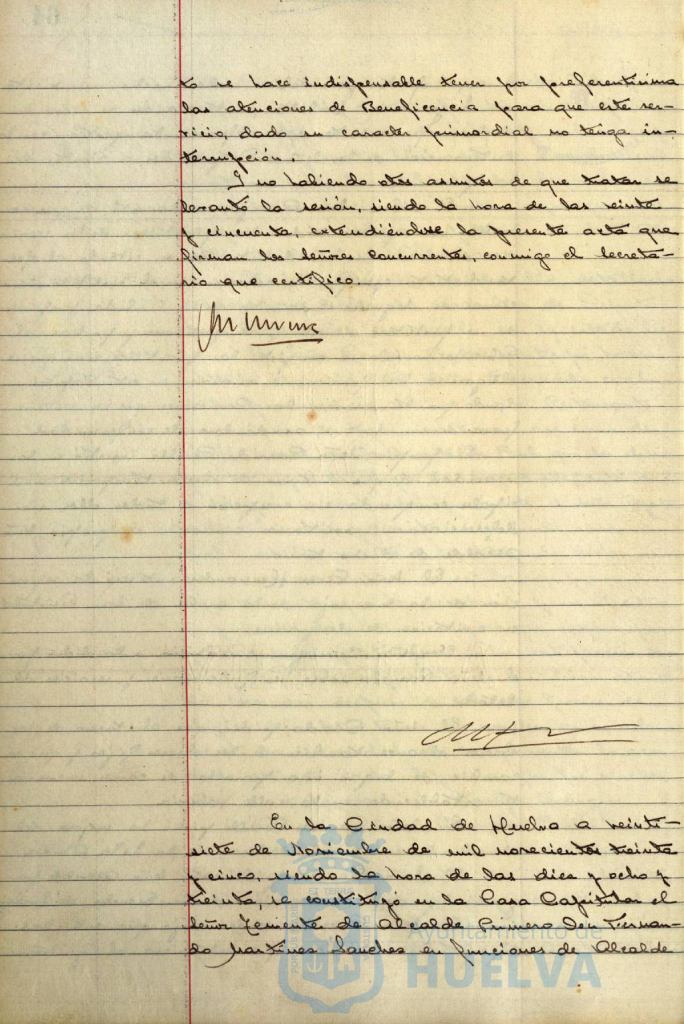 to se hace indispensable tener por preferentísima
las atenciones de Beneficencia para que este ser-
vicio, dado su caracter primordial no tenga in-
terrupción.
Y no habiendo otros asuntos de que tratar se
levantó la sesión, siendo la hora de las veinte
y cincuenta, extendiéndose la presente acta que
firman los señores concurrentes, conmigo el Secreta-
rio que certifico.
En la Ciudad de Huelva a veinti-
siete de Noviembre de mil novecientos treinta
y cinco, siendo la hora de las diez y ocho y
treinta, se constituyó en la Casa Capitular el
Señor Teniente de Alcalde Primero Don Fernan-
do Martinez Sanchez en funciones de Alcalde
Ayuntamiento de
HUELVA